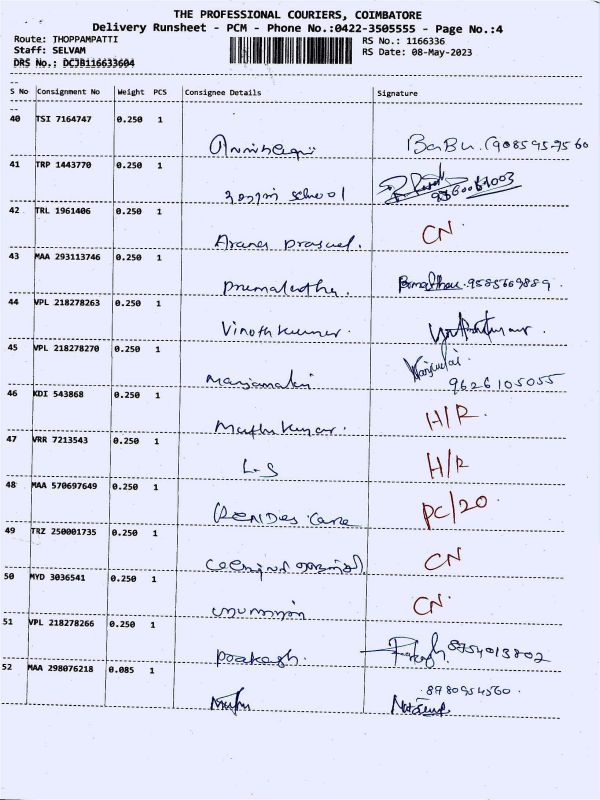 THE PROFESSIONAL COURIERS, COIMBATORE
Delivery Runsheet - PCM - Phone No.:0422-3505555 - Page No.:4
Route: THOPPAMPATTI RS No.: 1166336
Staff: SELVAM RS Date: 08-May-2023
DRS No.: DCJB116633604
S No Consignment No Weight PCS Consignee Details Signature
40 TSI 7164747 0.250 1
BaBu
41 TRP 1443770 0.250 1
school
42 TRL 1961406 0.250 1
CN
43 MAA 293113746 0.250 1
Premalatha. 9585669889.
44 VPL 218278263 0.250 1
Vinothkumar.
45 VPL 218278270 0.250 1
9626105055
46 KDI 543868 0.250 1
H/R.
47 VRR 7213543 0.250 1
L-S H/R
48 MAA 570697649 0.250 1
Care PC/20
49 TRZ 250001735 0.250 1
CN
50 MYD 3036541 0.250 1
CN
51 VPL 218278266 0.250 1
Prakash. 8754013802
52 MAA 298076218 0.085 1
8980954560